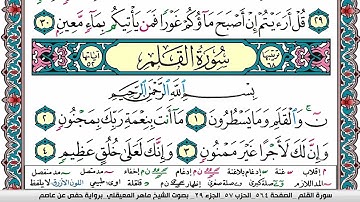 قُلْ أَرَءَيْتُمْ إِنْ أَصْبَحَ مَآؤُكُمْ غَوْرًا فَمَن يَأْتِيكُم بِمَآءٍ مَّعِينٍۭ ٣٠
سُورَةُ القَلَمِ
بِسْمِ ٱللَّهِ ٱلرَّحْمَٰنِ ٱلرَّحِيمِ
نٓ ۚ وَٱلْقَلَمِ وَمَا يَسْطُرُونَ ١ مَآ أَنتَ بِنِعْمَةِ رَبِّكَ بِمَجْنُونٍ ٢
وَإِنَّ لَكَ لَأَجْرًا غَيْرَ مَمْنُونٍ ٣ وَإِنَّكَ لَعَلَىٰ خُلُقٍ عَظِيمٍ ٤
سورة القلم الصفحة ٥٦٤ الحزب ٥٧ الجزء ٢٩ بصوت الشيخ ماهر المعيقلي برواية حفص عن عاصم